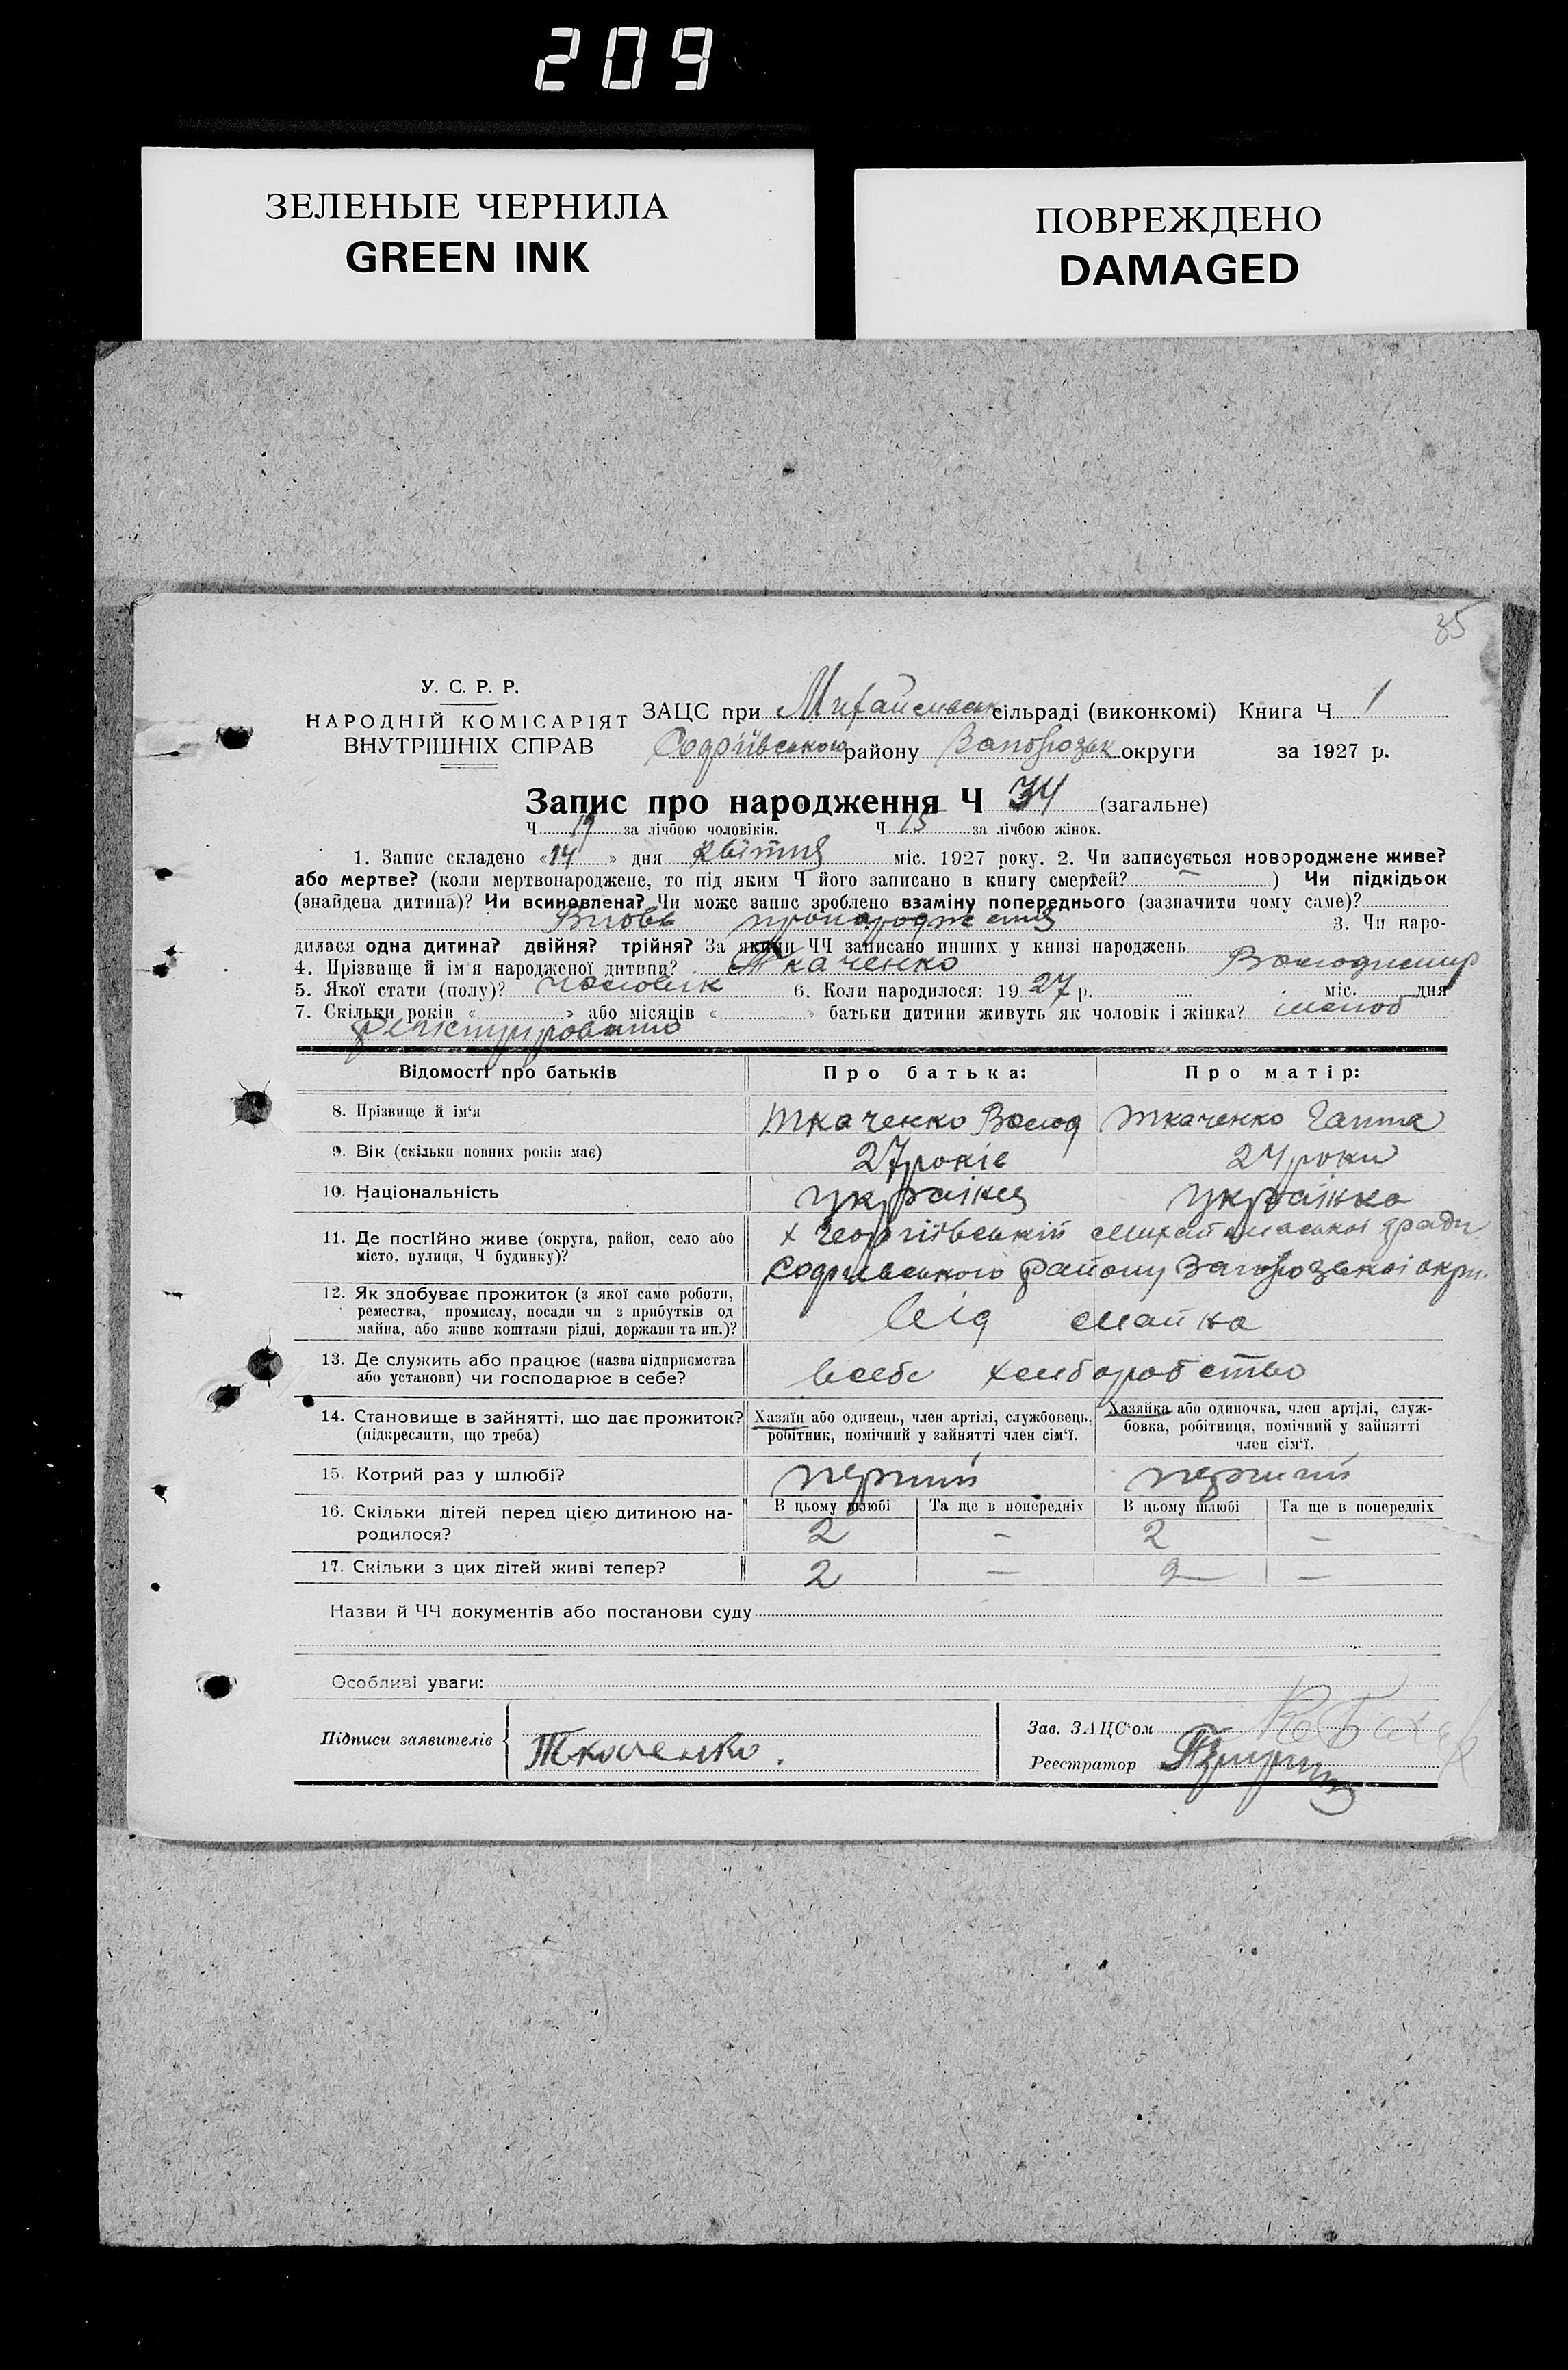 209
ЗЕЛЕНЫЕ ЧЕРНИЛА
GREEN INK
ПОВРЕЖДЕНО
DAMAGED
35
У. С. Р. Р.
НАРОДНІЙ КОМІСАРІЯТ
ВНУТРІШНІХ СПРАВ
ЗАЦС при Михайлівськ сільраді (виконкомі) Книга Ч 1
Софіївського району Запорозьк округи за 1927 р.
Запис про народження Ч 34 (загальне)
Ч 19 за лічбою чоловіків. Ч 15 за лічбою жінок.
1. Запис складено «14» дня квітня міс. 1927 року. 2. Чи записується новороджене живе?
або мертве? (коли мертвонароджене, то під яким Ч його записано в книгу смертей? — ) Чи підкідьок
(знайдена дитина)? Чи всиновлена? Чи може запис зроблено взаміну попереднього (зазначити чому саме)?
Вновь 3. Чи наро-
дилася одна дитина? двійня? трійня? За якими ЧЧ записано инших у книзі народжень
4. Прізвище й ім'я народженої дитини? Ткаченко Володимир
5. Якої стати (полу)? чоловік 6. Коли народилося: 1927 р. міс. дня
7. Скільки років « » або місяців « » батьки дитини живуть як чоловік і жінка? шлюб
Відомості про батьків Про батька: Про матір:
8. Прізвище й ім'я Ткаченко Волод Ткаченко Ганна
9. Вік (скільки повних років має) 27 років 24 роки
10. Національність українец українка
11. Де постійно живе (округа, район, село або
місто, вулиця, Ч будинку)?
х Георгіївський Михайлівської зради
Софіївського району Запорозької окри.
12. Як здобуває прожиток (з якої саме роботи,
ремества, промислу, посади чи з прибутків од
майна, або живе коштами рідні, держави та ин.)?
від майна
13. Де служить або працює (назва підприємства
або установи) чи господарює в себе?
всебе хлеборобство
14. Становище в зайнятті, що дає прожиток?
(підкреслити, що треба)
Хазяїн або одинець, член артілі, службовець,
робітник, помічний у зайнятті член сім'ї.
Хазяйка або одиночка, член артілі, служ-
бовка, робітниця, помічний у зайнятті
член сім'ї.
15. Котрий раз у шлюбі? перший перший
16. Скільки дітей перед цією дитиною на-
родилося?
В цьому шлюбі Та ще в попередніх В цьому шлюбі Та ще в попередніх
2 — 2 —
17. Скільки з цих дітей живі тепер? 2 — 2 —
Назви й ЧЧ документів або постанови суду
Особливі уваги:
Підписи заявителів Ткаченко.
Зав. ЗАЦС'ом
Реєстратор